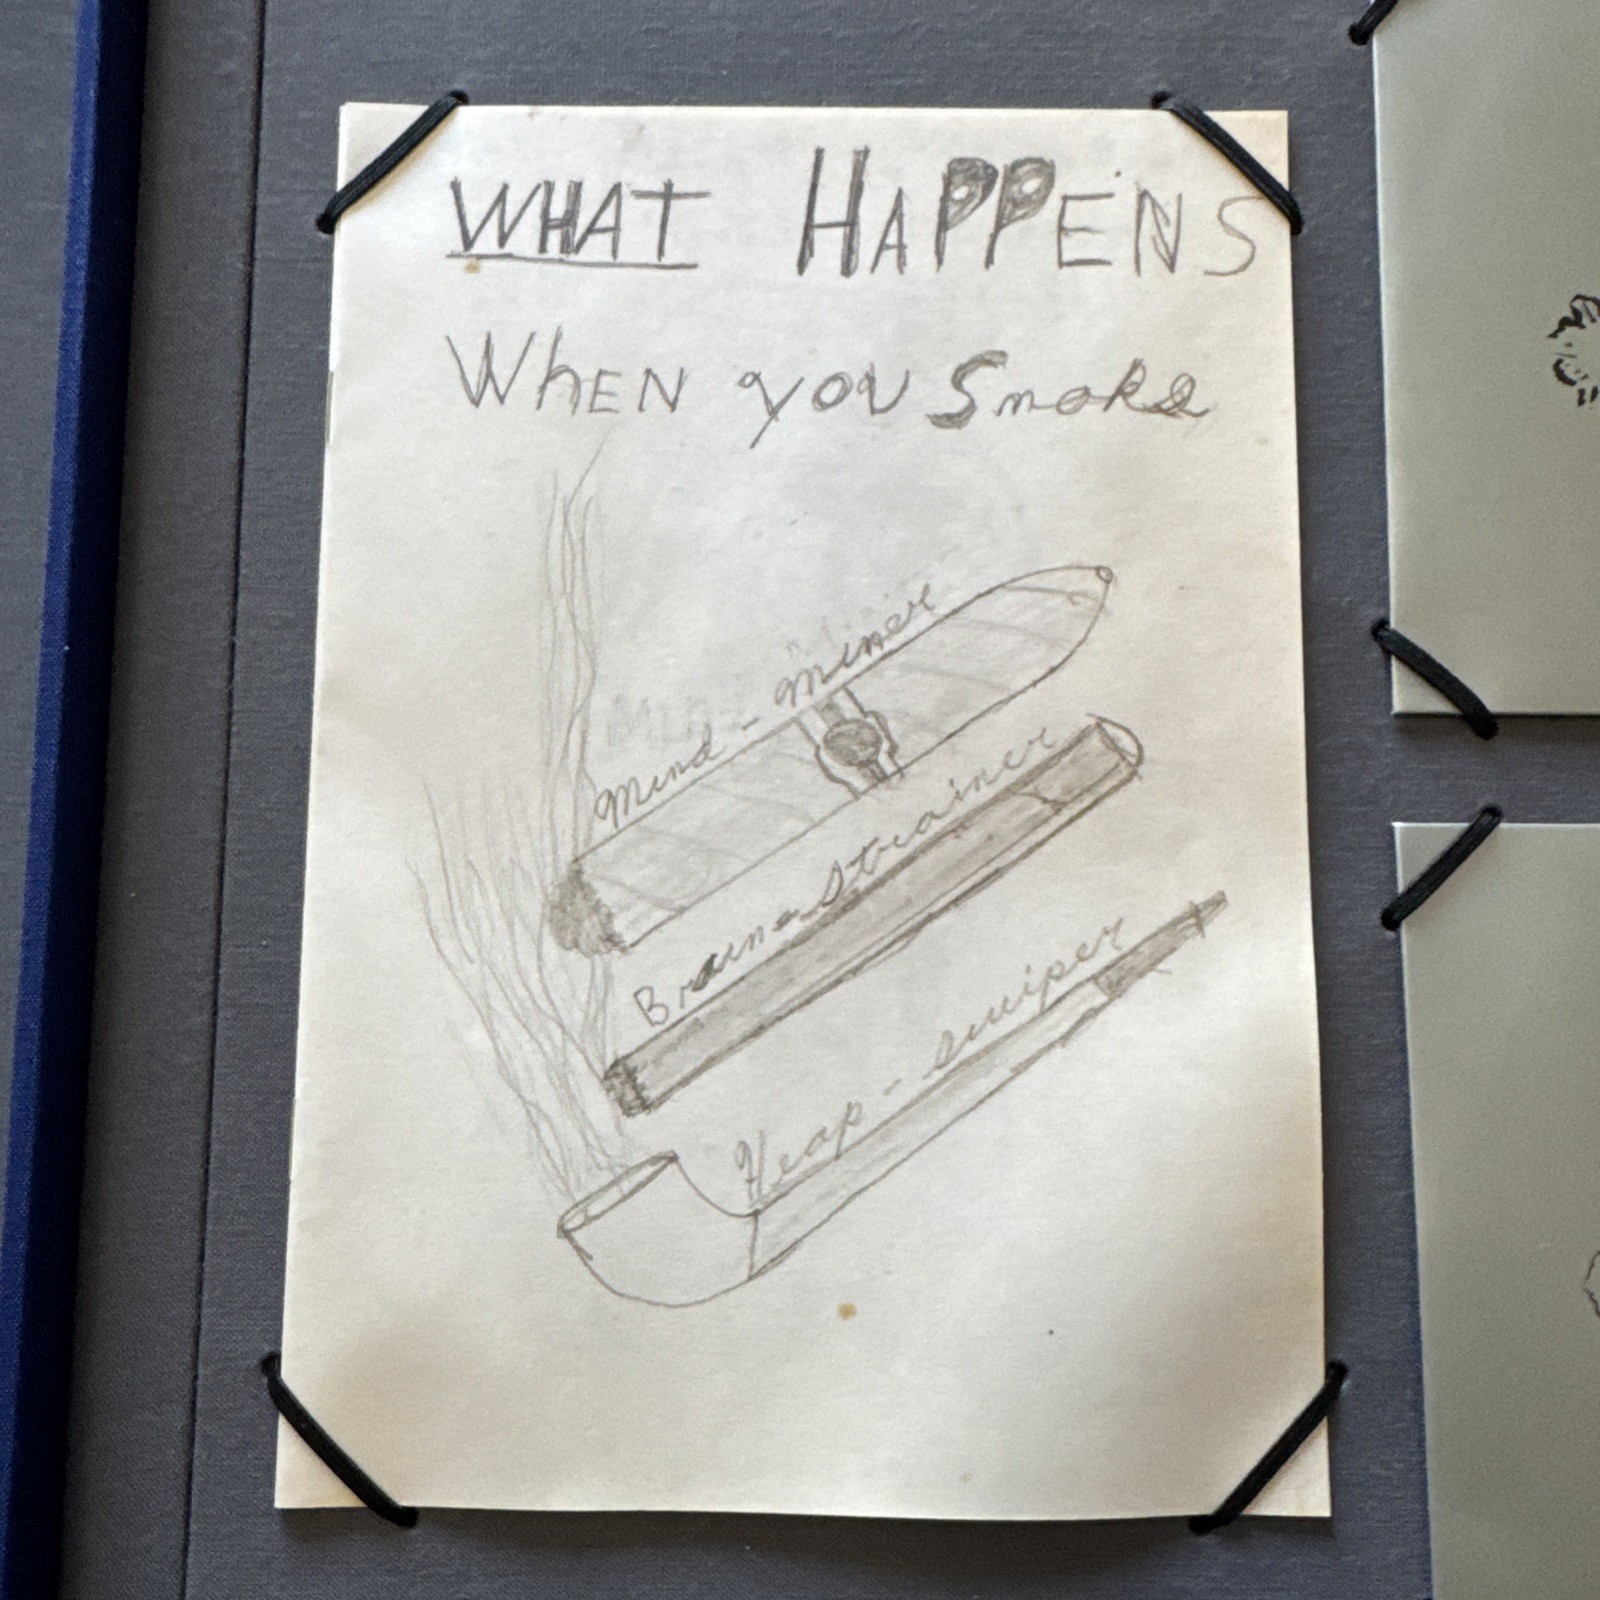 WHAT HAPPENS
WHEN YOU Smoke
Mind - Miner
Braine strainer
Heap - swiper